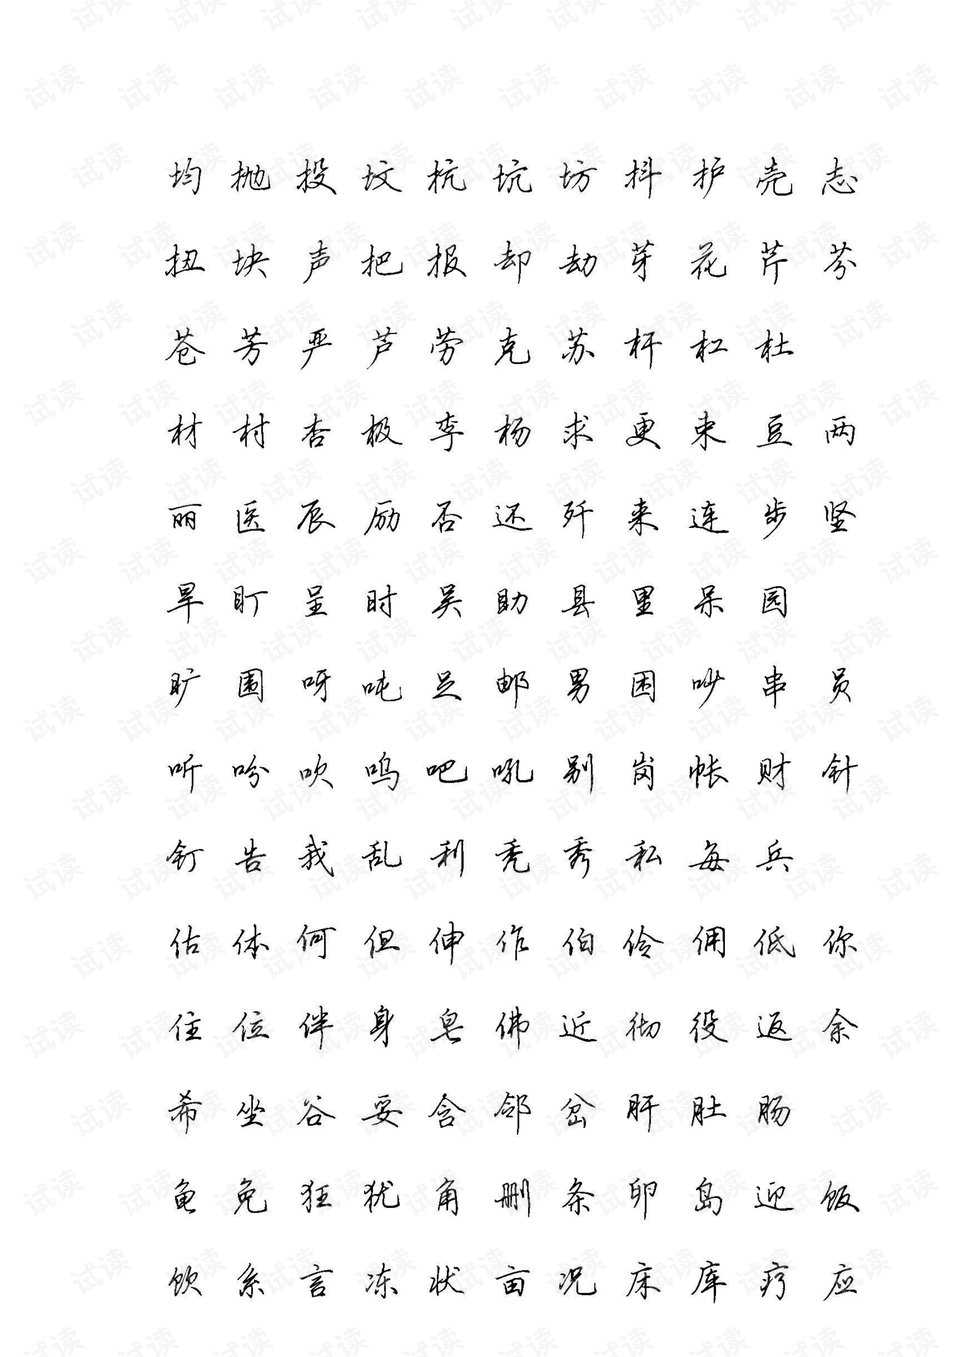 均 抛 投 坟 杭 坑 坊 抖 护 壳 志
扭 块 声 把 报 却 劫 芽 花 芹 芬
苍 芳 严 芦 劳 克 苏 杆 杠 杜
材 村 杏 极 李 杨 求 更 束 豆 两
丽 医 辰 励 否 还 歼 来 连 步 坚
旱 盯 呈 时 吴 助 县 里 呆 园
旷 围 呀 吨 足 邮 男 困 吵 串 员
听 吩 吹 呜 吧 吼 别 岗 帐 财 针
钉 告 我 乱 利 秃 秀 私 每 兵
估 体 何 但 伸 作 伯 伶 佣 低 你
住 位 伴 身 皂 佛 近 彻 役 返 余
希 坐 谷 妥 含 邻 岔 肝 肚 肠
龟 免 狂 犹 角 删 条 卵 岛 迎 饭
饮 系 言 冻 状 亩 况 床 库 疗 应